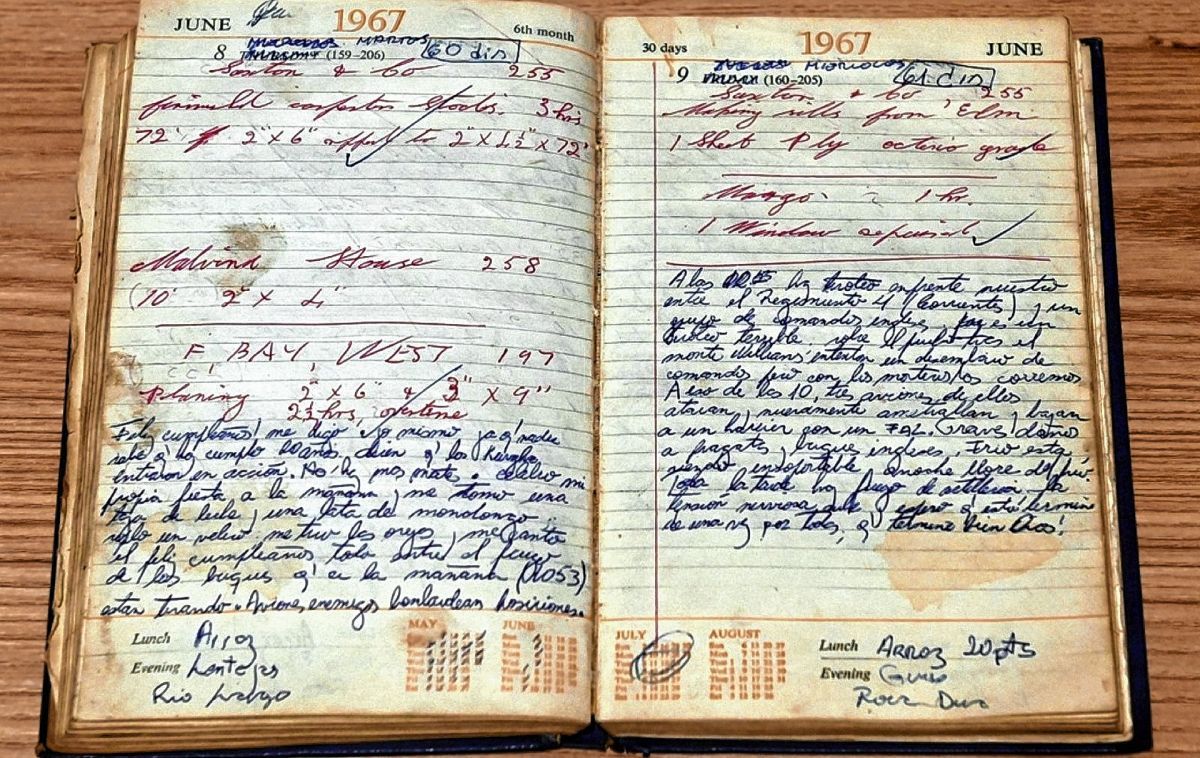 JUNE 1967 6th month
8 MARTES (159–206) 60 dis
Saxton & Co 255
3 hrs
72' 2" X 6" to 2" X 1½" X 72'
Malvina House 258
(10' 2" X 4"
F. BAY WEST 197
Planing 2" X 6" & 3" X 9"
2½ hrs overtime
Feliz cumpleaños! me digo yo mismo ya q' nadie
sabe q' hoy cumplo 20 años. dicen q' los
entraron en acción. celebro mi
propia fiesta a la mañana, me tomo una
taza de leche, una lata de mondongo
un velero, me tiro las orejas, me canto
el feliz cumpleaños, todo entre el fuego
de los buques q' a la mañana (0053)
estan tirando. Aviones enemigos bombardean posiciones.
Lunch Arroz
Evening Lentejas
Rio
MAY JUNE
30 days 1967 JUNE
9 MIERCOLES (160–205) 61 dis
Saxton & Co 255
Making sills from Elm
1 Sheet Ply grade
1 hr.
1 Window
A las hay tiroteo enfrente nuestro
entre el Regimiento 4 (Corrientes) y un
grupo de comandos ingles, es un
tiroteo terrible, sobre el
monte Williams intentan un desembarco de
comandos pero con los morteros los corremos
A eso de las 10, tres aviones de ellos
atacan, nuevamente ametrallan, bajan
a un harrier con un FAL. Graves daños
a fragatas, buques ingleses. Frio esta
siendo insoportable, anoche llore de frio.
Toda la tarde hay fuego de artilleria, la
tensión nerviosa espero q' esto termine
de una vez por todas, q' termine bien Dios!
JULY AUGUST
Lunch ARROZ 20 pts
Evening Guiso